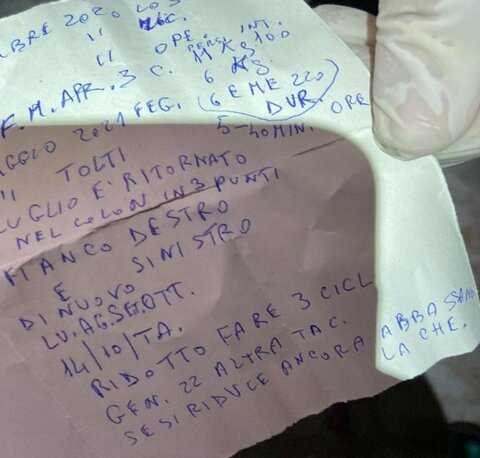 BRE 2020 CO
11
11 OPE INT.
PERSI 11 KS 100
F. M. APR. 3 C. 6 KS.
AGGIO 2021 FEG. (6 EME 220
DUR. ORE
5-40 MIN.
11 TOLTI
LUGLIO E' RITORNATO
NEL COLON IN 3 PUNTI
FIANCO DESTRO
E SINISTRO
DI NUOVO
LU. AG. SE. OTT.
14/10/TA.
RIDOTTO FARE 3 CICL
GEN. 22 ALTRA TAC.
SE SI RIDUCE ANCORA ABBASSANO
LA CHE.